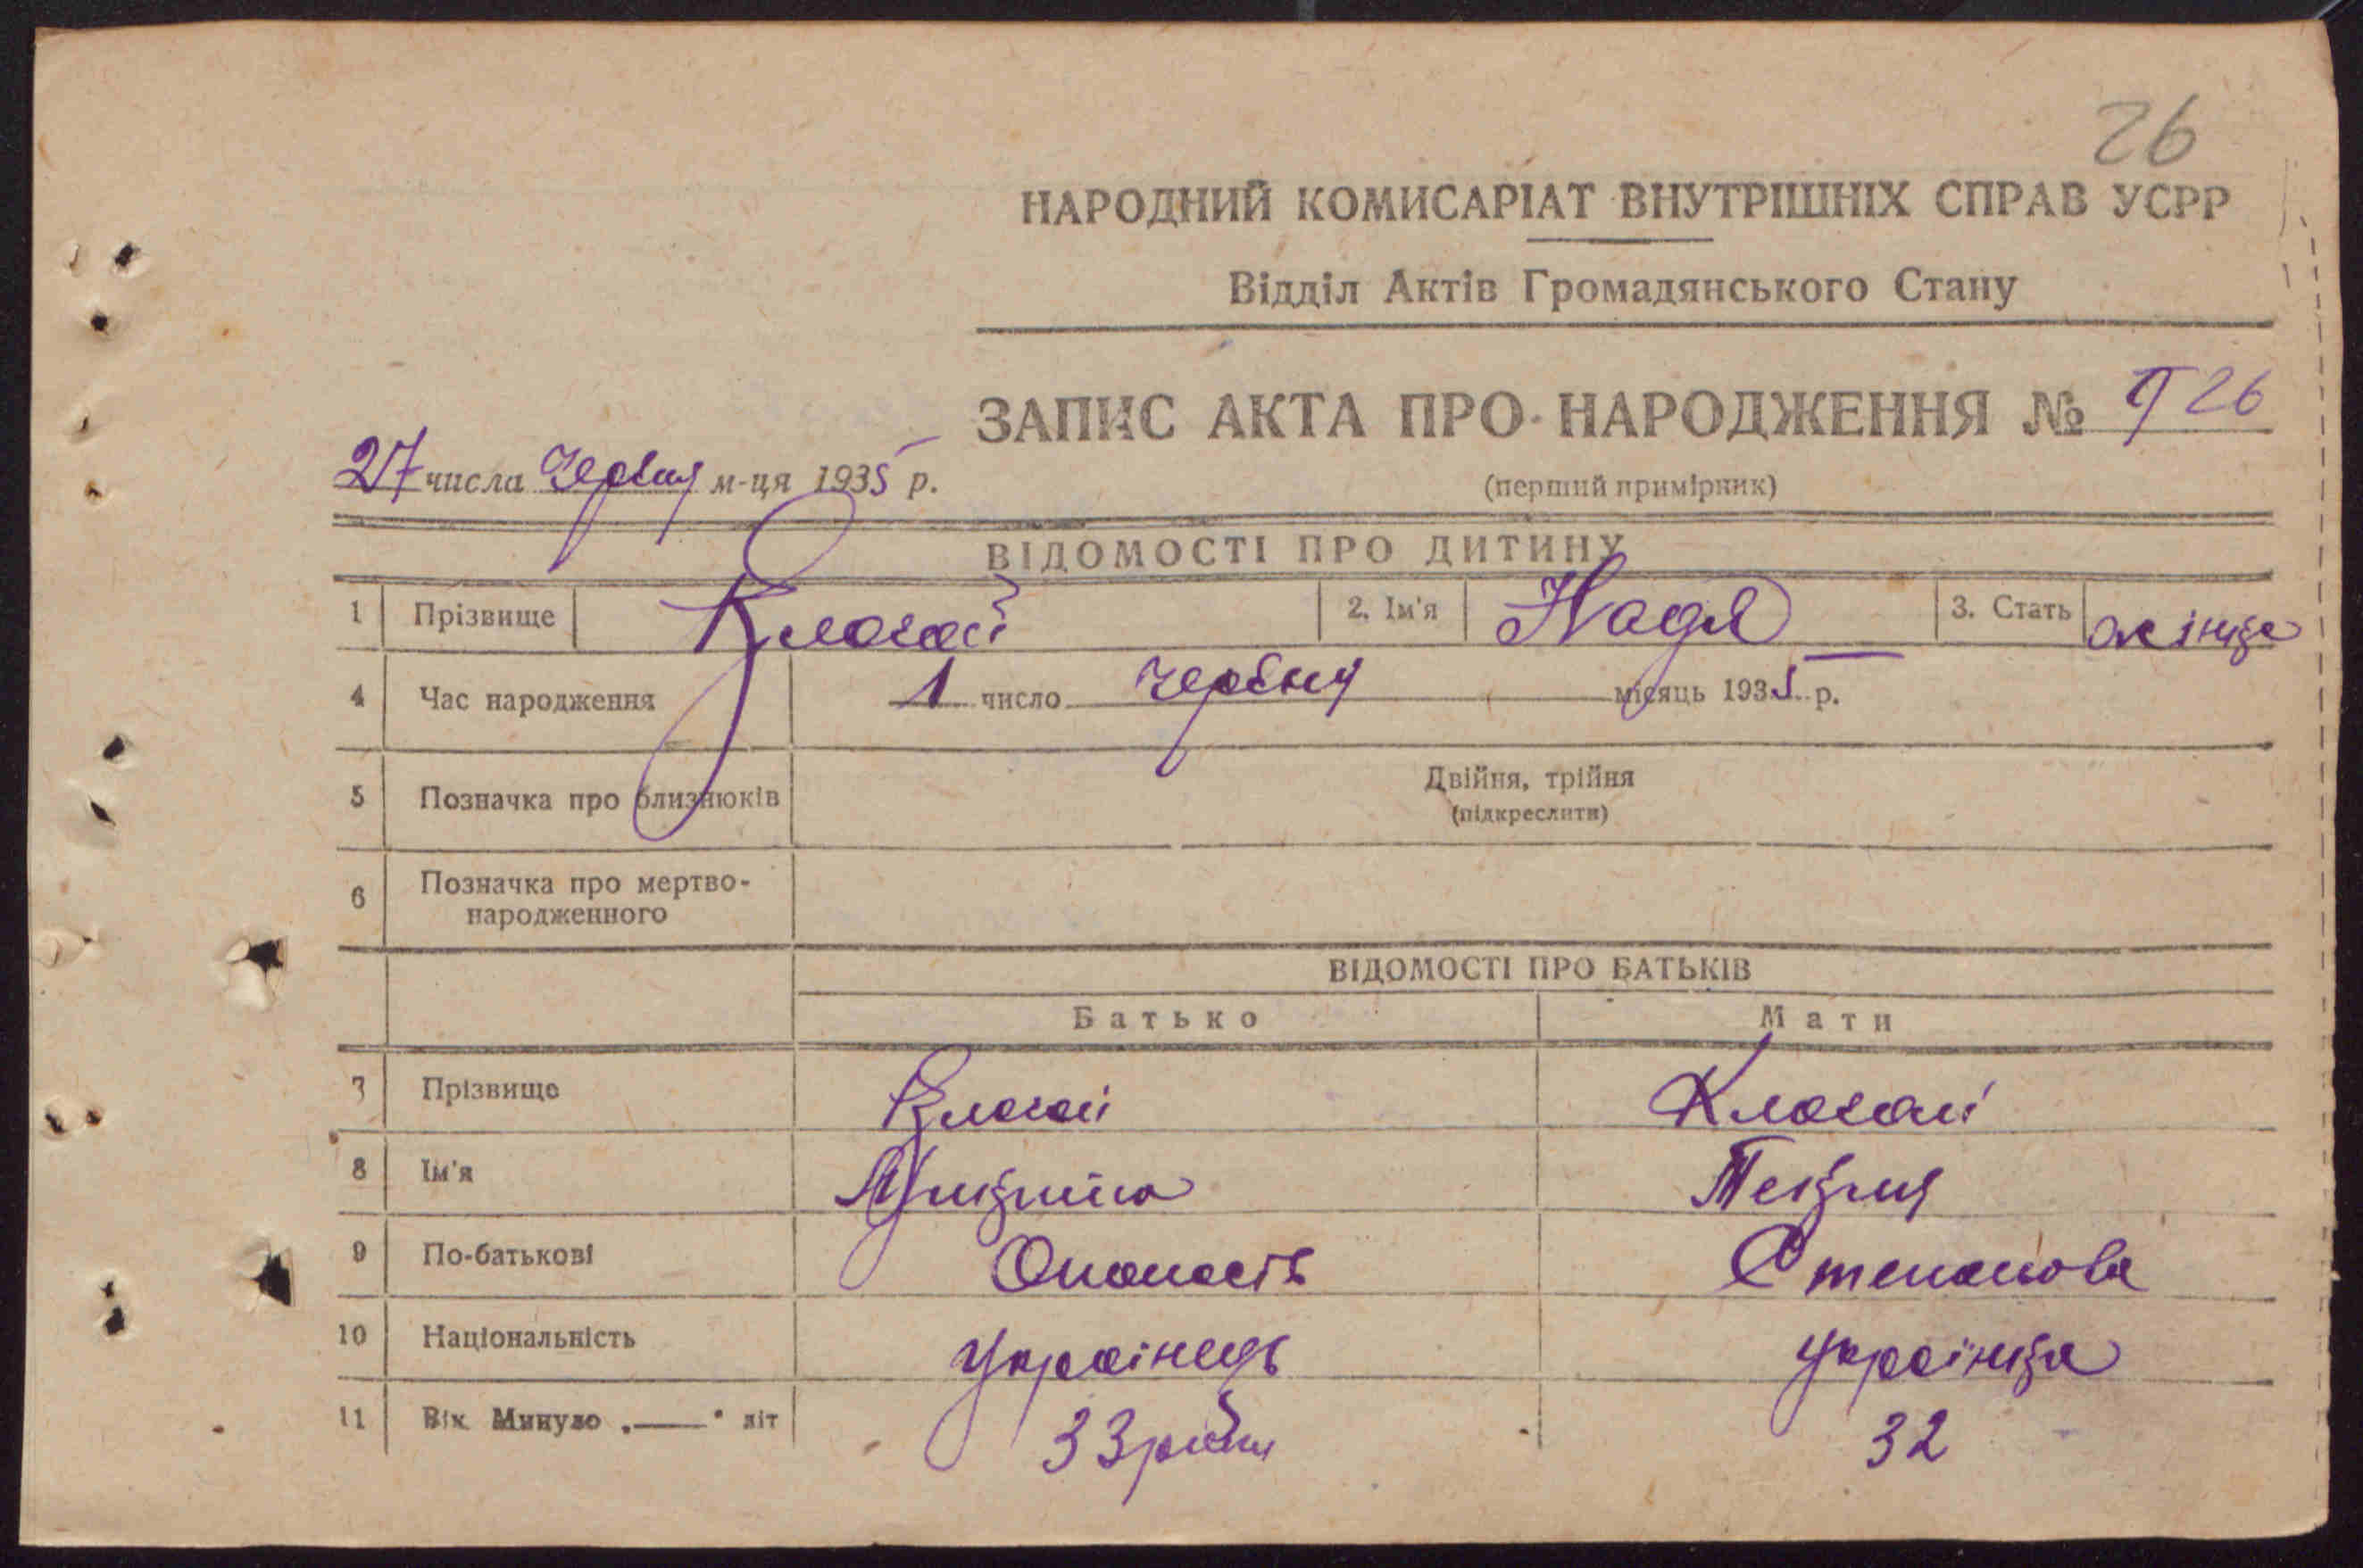 26
НАРОДНИЙ КОМИСАРІАТ ВНУТРІШНІХ СПРАВ УСРР
Відділ Актів Громадянського Стану
ЗАПИС АКТА ПРО НАРОДЖЕННЯ № 26
27 числа Червня м-ця 1935 р.
(перший примірник)
ВІДОМОСТІ ПРО ДИТИНУ
1 Прізвище 2. Ім'я Надя 3. Стать жінца
4 Час народження 1 число червня місяць 1935 р.
5 Позначка про близнюків Двійня, трійня
(підкреслити)
6 Позначка про мертво-
народженного
ВІДОМОСТІ ПРО БАТЬКІВ
Батько Мати
7 Прізвище
8 Ім'я Текля
9 По-батькові Опанасів Степанова
10 Національність Українець Українца
11 Вік Минуло „——" літ 33 роки 32